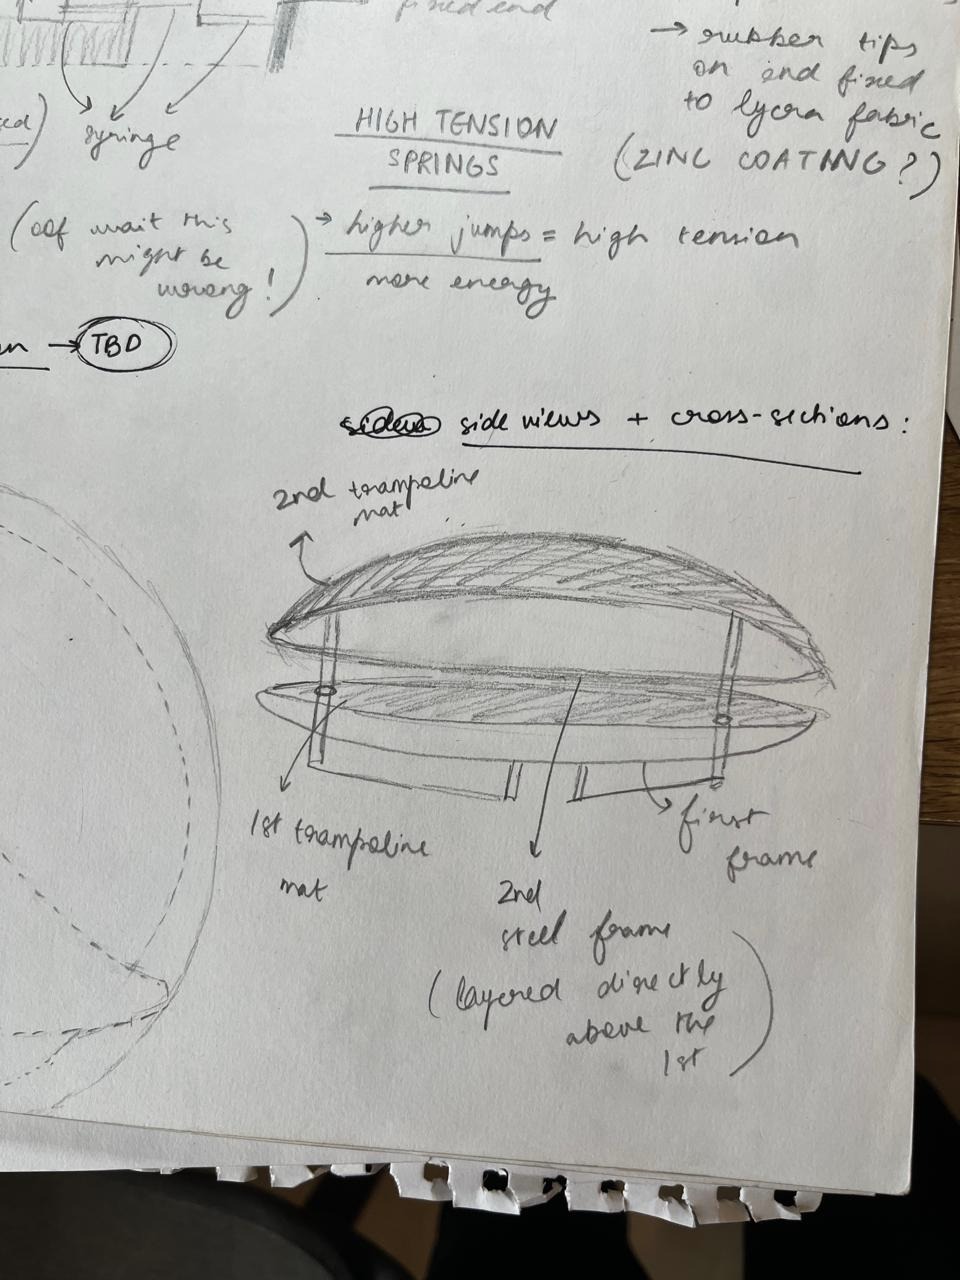 fixed end
→ rubber tips
on end fixed
to lycra fabric
(ZINC COATING?)
syringe
HIGH TENSION
SPRINGS
(oof wait this
might be
wrong!)
→ higher jumps = high tension
more energy
→ TBD
side views + cross-sections:
2nd trampoline
mat
1st trampoline
mat
first
frame
2nd
steel frame
(layered directly
above the
1st)